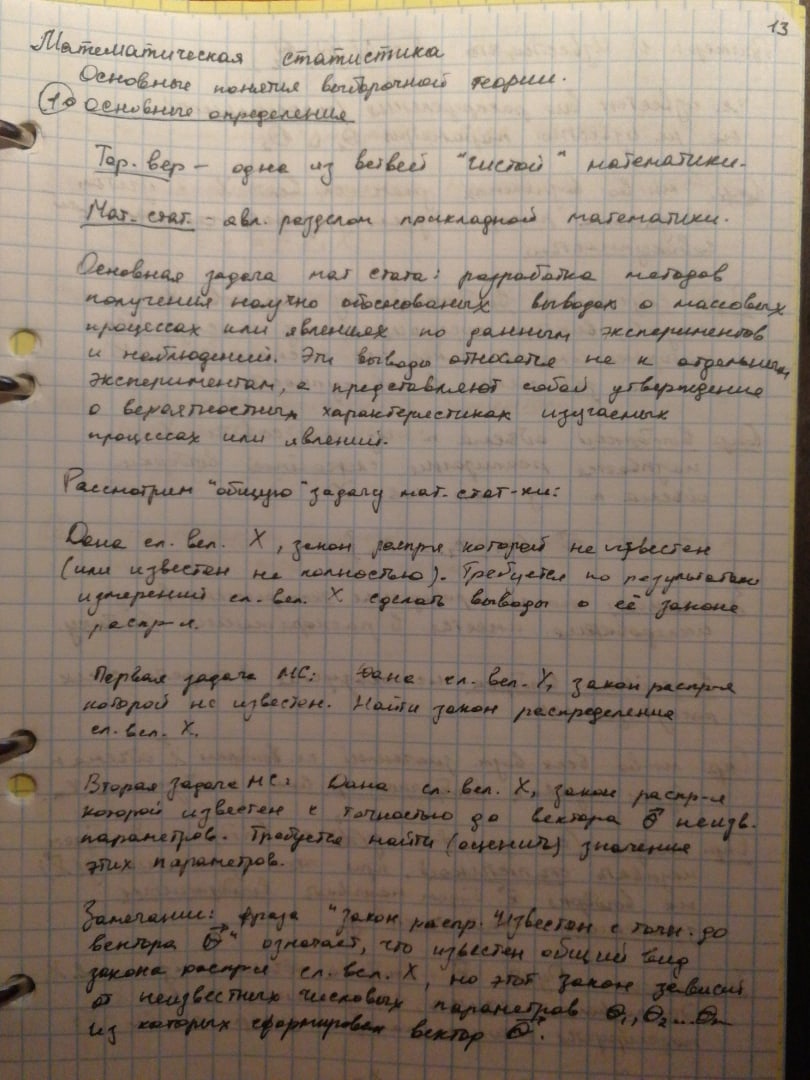 13
Математическая статистика
Основные понятия выборочной теории.
1o Основные определения
Тер. вер - одна из ветвей "чистой" математики.
Мат. стат. - явл. разделом прикладной математики.
Основная задача мат стата: разработка методов
получения научно обоснованых выводов о массовых
процессах или явлениях по данным экспериментов
и наблюдений. Эти выводы относятся не к отдельным
экспериментам, а представляют собой утверждение
о вероятностных характеристиках изучаемых
процессах или явлений.
Рассмотрим "общую" задачу мат. стат-ки:
Дана сл. вел. X, закон распр-я которой не известен
(или известен не полностью). Требуется по результатам
измерений сл. вел. X сделать выводы о её законе
распр-я.
Первая задача МС: Дана сл. вел. X, закон распр-я
которой не известен. Найти закон распределение
сл. вел. X.
Вторая задача МС: Дана сл. вел. X, закон распр-я
которой известен с точностью до вектора θ⃗ неизв.
параметров. Требуется найти (оценить) значение
этих параметров.
Замечание: фраза "закон распр. известен с точн. до
вектора θ⃗" означает, что известен общий вид
закона распр-я сл. вел. X, но этот закон зависит
от неизвестных числовых параметров θ₁, θ₂...θn
из которых сформирован вектор θ⃗.